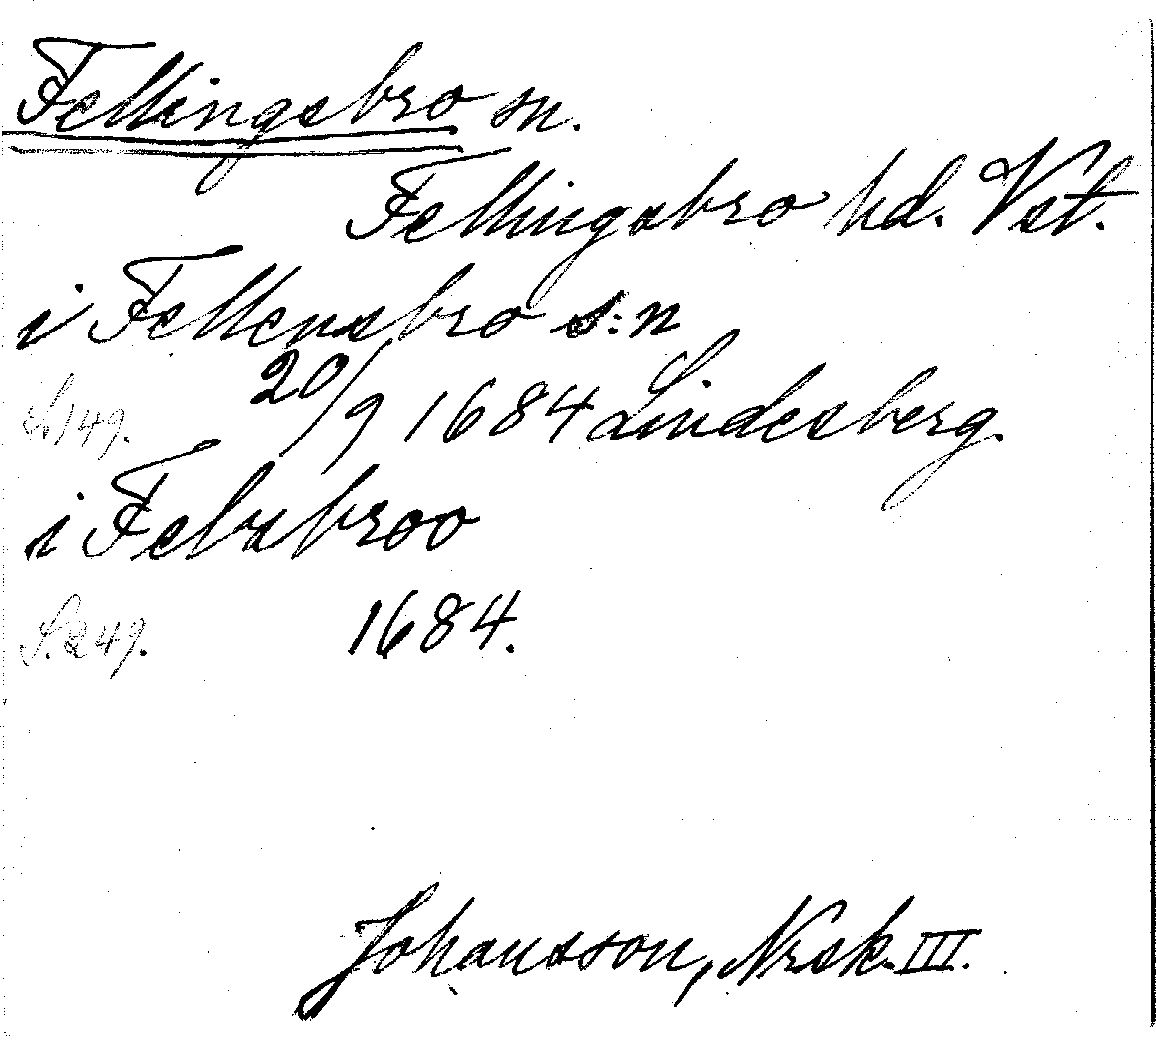 Fellingsbro sn.
Fellingsbro hd. Vst.
i Fellensbro s:n
S. 149. 20/9 1684 Lindesberg.
i Felssbroo
S. 249. 1684.
Johansson, Nrsk. III.